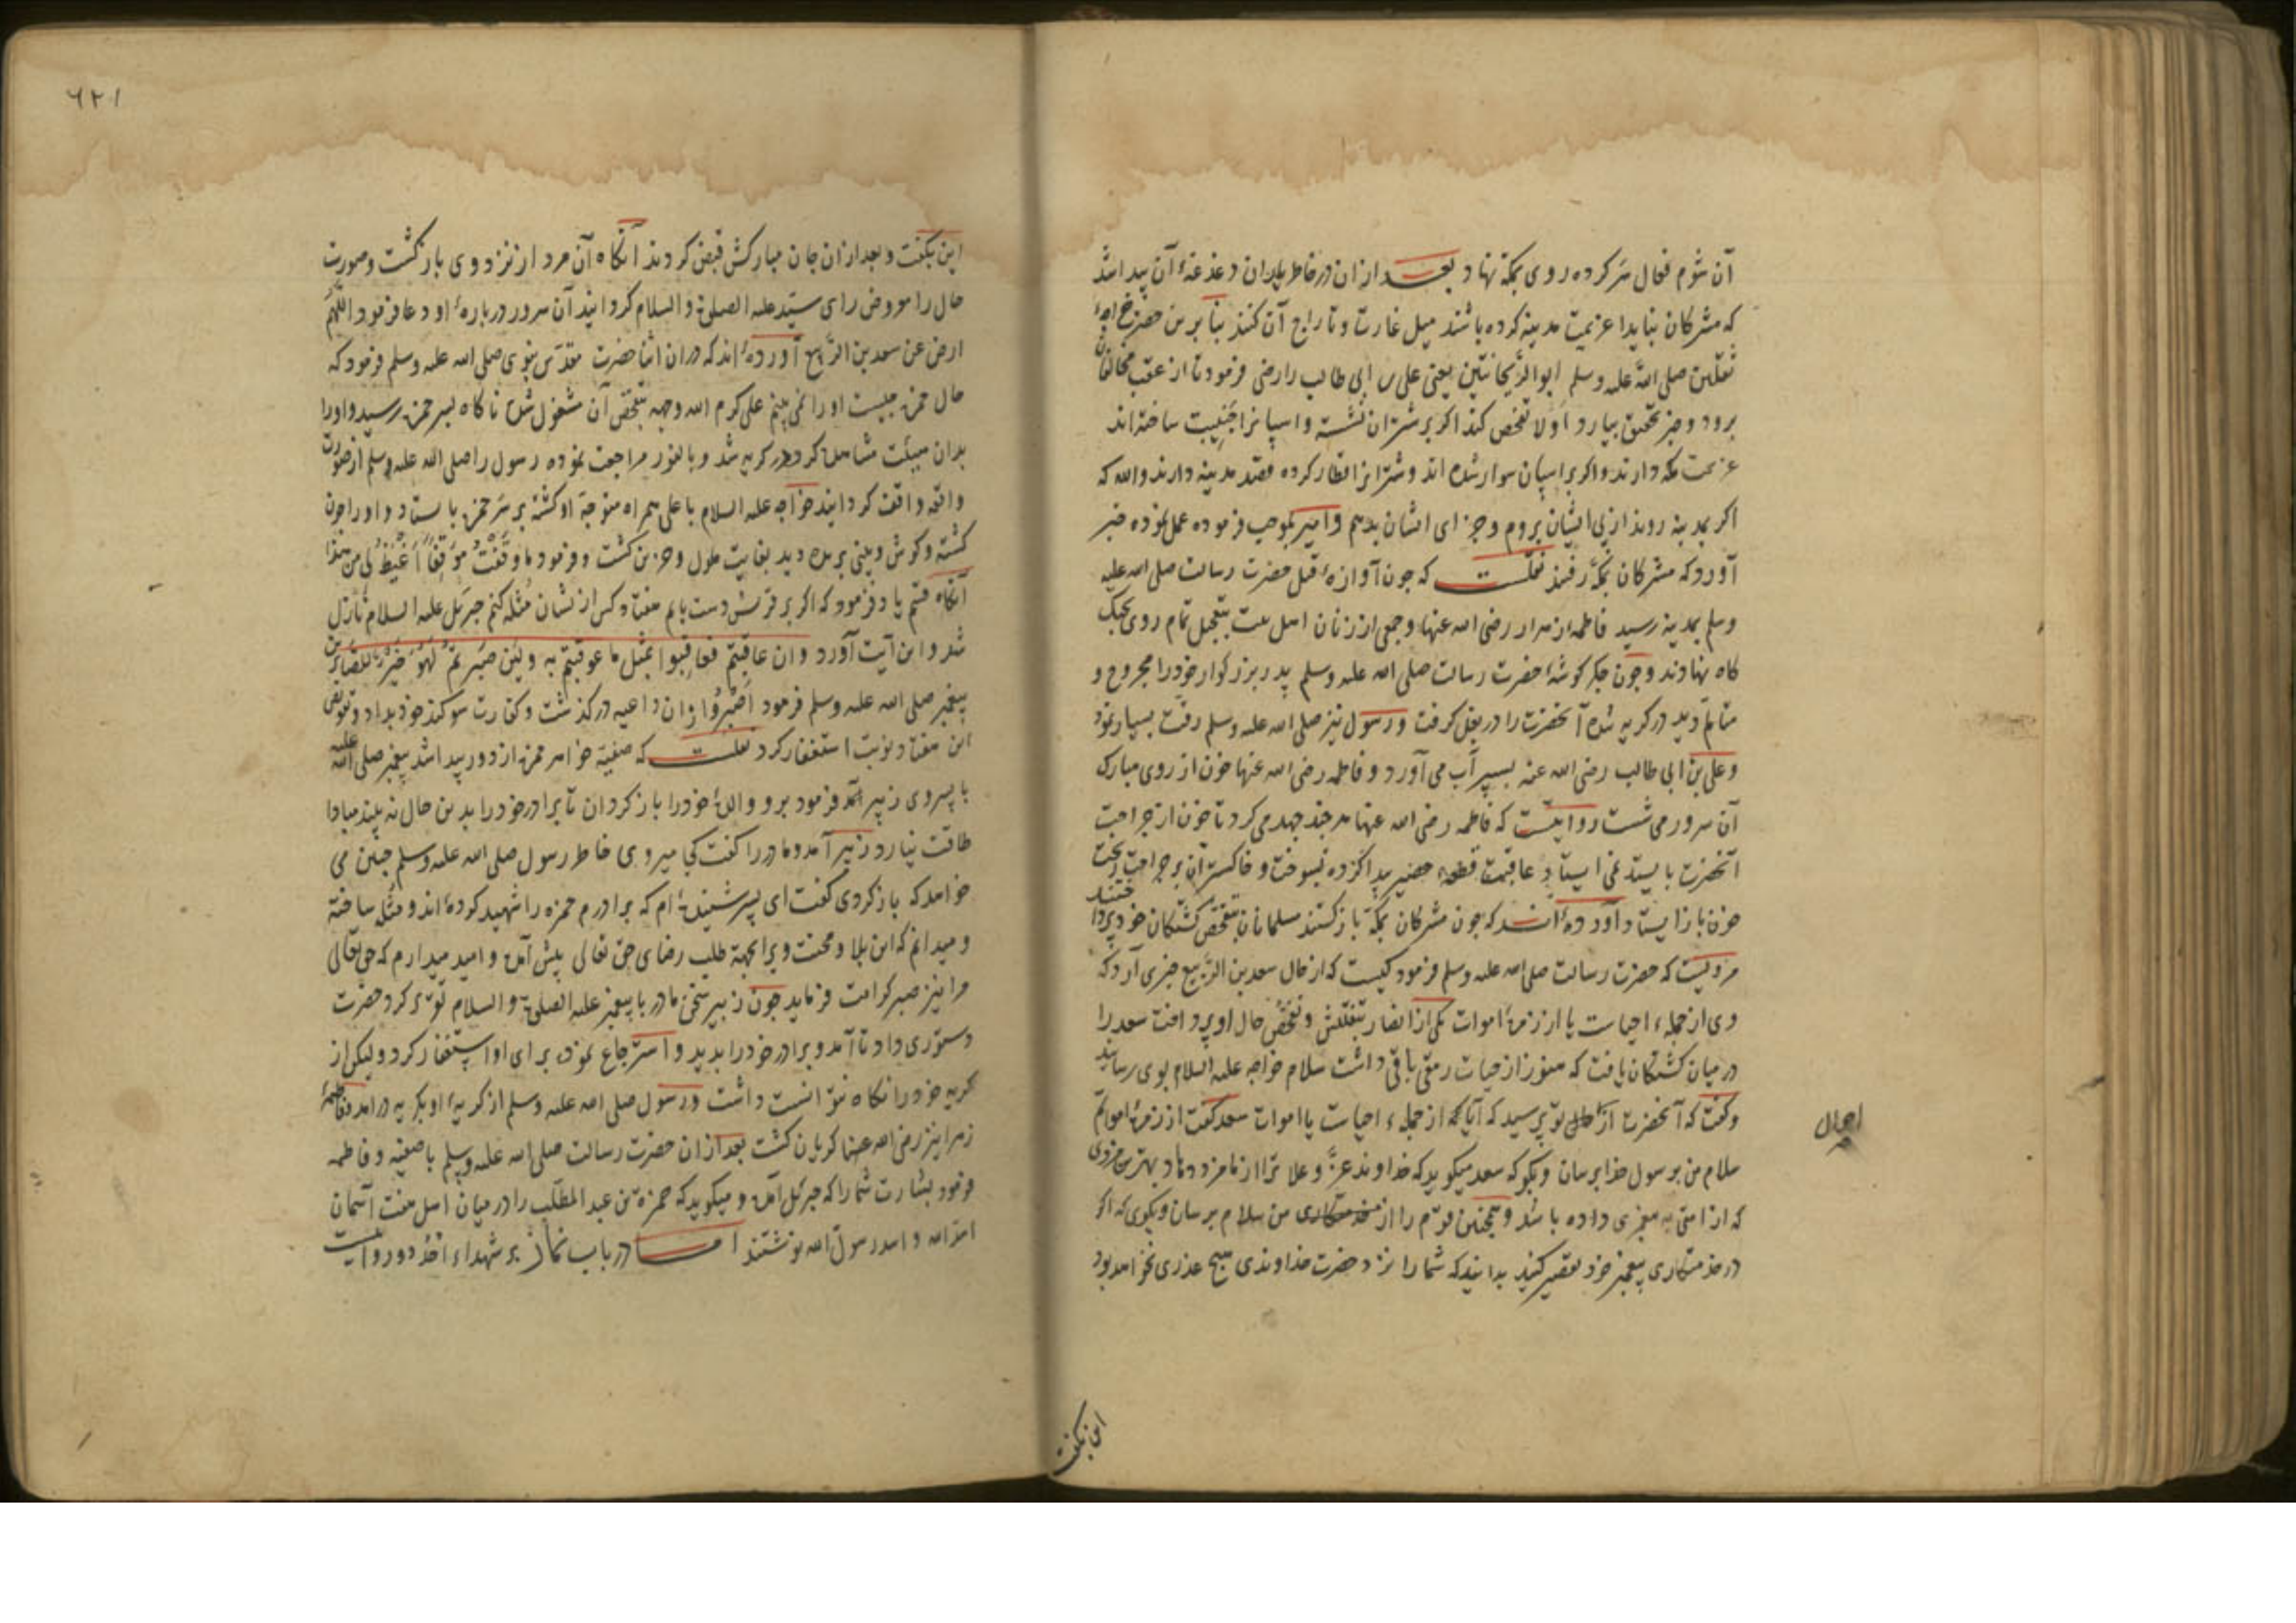 آن شوم فعال سر کرده روی بمکه نهاد بعد ازان در خاطر یاران دغدغهٔ آن پیدا شد
که مشرکان نباید عزیمت مدینه کرده باشند میل غارت و تاراج آن کنند بنابرین حضرت خواجهٔ
ثقلین صلی الله علیه وسلم ابو الریحانتین یعنی علی بن ابی طالب را رضی فرمود تا از عقب مخالفان
برود و خبر تحقیق بیارد اولا تفحص کند اکر بر شتران نشسته و اسپانرا جنیبت ساخته اند
عزیمت مکه دارند و اکر بر اسپان سوار شده اند و شترانرا قطار کرده قصد مدینه دارند والله که
اکر بمدینه روند از پی ایشان بروم و جزای ایشان بدهم و امیر بموجب فرموده عمل نموده خبر
آورد که مشرکان بمکه رفتند نقلست که چون آوازهٔ قتل حضرت رسالت صلی الله علیه
وسلم بمدینه رسید فاطمه زهرا رضی الله عنها و جمعی از زنان اهل بیت بتعجیل تمام روی بجنک
کاه نهادند و چون جکر کوشهٔ حضرت رسالت صلی الله علیه وسلم پدر بزرکوار خود را مجروح و
متالم دید در کریه شده آنحضرت را در بغل کرفت و رسول نیز صلی الله علیه وسلم رقت بسیار نمود
و علی بن ابی طالب رضی الله عنه بسپر آب می آورد و فاطمه رضی الله عنها خون از روی مبارک
آن سرور می شست روایتست که فاطمه رضی الله عنها هر چند جهد می کرد تا خون از جراحت
آنحضرت بایستد نمی ایستاد عاقبت قطعهٔ حصیر پیدا کرده بسوخت و خاکستر آن بر جراحت ریخت
خون باز ایستاد آورده اند که چون مشرکان بمکه باز کشتند مسلمانان بتفحص کشتکان خود پرداختند
مرویست که حضرت رسالت صلی الله علیه وسلم فرمود کیست که از حال سعد بن الربیع خبری آرد که
وی از جملهٔ احیاست یا از زمرهٔ اموات یکی از انصار بتفتیش و تفحص حال او پرداخت سعد را
در میان کشتکان یافت که هنوز از حیات رمقی باقی داشت سلام خواجه علیه السلام بوی رسانید
و کفت که آنحضرت از حال تو پرسید که آیا که از جملهٔ احیاست یا اموات سعد کفت از زمرهٔ امواتم
سلام من بر رسول خدا برسان و بکو که سعد میکوید که خداوند عز و علا ترا از ما مزد دهاد بهترین مزدی
که از امتی به پیغمبری داده باشد و همچنین قوم را از من سلام برسان و بکوی که اکر
در خدمتکاری پیغمبر خود تقصیر کنید بدانید که شما را نزد حضرت خداوندی هیچ عذری نخواهد بود
احوال
این بکفت
۶۲۱
این بکفت و بعد ازان جان مبارکش قبض کردند آنکاه آن مرد از نزد وی باز کشت و صورت
حال را معروض رای سید علیه الصلوة والسلام کردانید آن سرور در بارهٔ او دعا فرمود اللهم
ارض عن سعد بن الربیع آورده اند که در ان اثنا حضرت مقدس نبوی صلی الله علیه وسلم فرمود که
حال حمزه چیست او را نمی بینم علی کرم الله وجهه بتفحص آن مشغول شد ناکاه بسر حمزه رسید و او را
بدان هیئت مشاهده کرد در کریه شد و بالفور مراجعت نموده رسول را صلی الله علیه وسلم از صورت
واقعه واقف کردانید خواجه علیه السلام با علی همراه متوجه او کشته بر سر حمزه باستاد و او را چون
کشته و کوش و بینی بریده دید بغایت ملول و حزین کشت و فرمود ما وقفت موقفا اغیظ لی من هذا
آنکاه قسم یاد فرمود که اکر بر قریش دست یابم هفتاد کس از نشان مثله کنم جبرئیل علیه السلام نازل
شد و این آیت آورد و ان عاقبتم فعاقبوا بمثل ما عوقبتم به ولئن صبرتم لهو خیر للصابرین
پیغمبر صلی الله علیه وسلم فرمود اصبروا ازان داعیه در کذشت و کفارت سوکند خود بداد و
این هفتاد نوبت استغفار کرد نقلست که صفیه خواهر حمزه از دور پیدا شد پیغمبر صلی الله علیه
با پسر وی زبیر فرمود برو والدهٔ خود را باز کردان تا برادر خود را بدین حال نه بیند مبادا
طاقت نیارد زبیر آمد و مادر را کفت کجا میروی خاطر رسول صلی الله علیه وسلم چنین می
خواهد که باز کردی کفت ای پسر شنیده ام که برادرم حمزه را شهید کرده اند و مثله ساخته
و میدانم که این بلا و محنت ویرا بجهة طلب رضای حق تعالی پیش آمد و امید میدارم که حق تعالی
مرا نیز صبر کرامت فرماید چون زبیر سخن مادر با پیغمبر علیه الصلوة والسلام تقریر کرد حضرت
دستوری داد تا آمد و برادر خود را بدید و استرجاع نموده برای او استغفار کرد و لیکن از
کریه خود را نکاه نتوانست داشت و رسول صلی الله علیه وسلم از کریهٔ او بکریه در آمد و فاطمهٔ
زهرا نیز رضی الله عنها کریان کشت بعد ازان حضرت رسالت صلی الله علیه وسلم با صفیه و فاطمه
فرمود بشارت شما را که جبرئیل آمد و میکوید که حمزه بن عبد المطلب را در میان اهل هفت آسمان
اسد الله و اسد رسول الله نوشتند اما در باب نماز بر شهداء احد دو روایتست